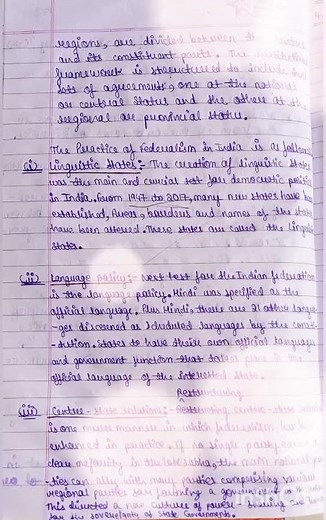 regions, are divided between the
and its constituent parts. The
framework is structured to include
sets of agreements, one at the national
or central status and the others at the
regional or provincial status.
The Practice of Federalism in India is as follows
(i) Linguistic States:- The creation of linguistic States
was the main and crucial test for democratic politics
in India. From 1947 to 2017, many new states have been
established, Areas, borders and names of the states
have been altered. These states are called the linguistic
States.
(ii) Language policy:- Next test for the Indian federation
is the language policy. Hindi was specified as the
official language. Plus Hindi, there are 21 other langua
-ges discerned as Scheduled languages by the consti
-tution. States to have their own official languages
and government function that takes place in the
official language of the interested state.
Restructuring
(iii) Centre-State relations:- Restructuring centre-state relations
is one more manner in which federalism has been
enhanced in practice. If no single party
clear majority in the lok sabha, the main national par
ties can ally with many parties comprising various
regional parties for forming a government
This directed a new culture of power sharing and
for the sovereignty of State Governments.